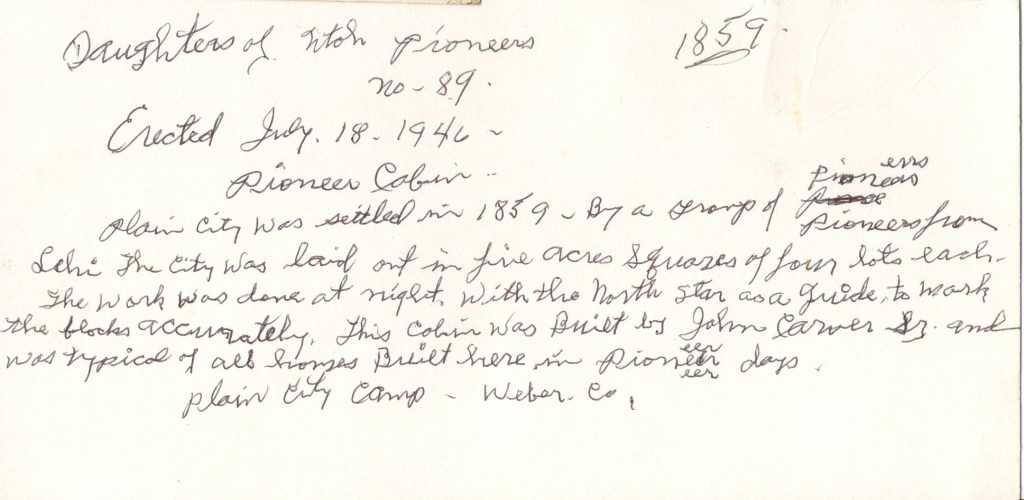 Daughters of Utoh Pioneers 1859.
no-89.
Erected July. 18-1946~
Pioneer Cabin..
errs
Pioneers
Plain City was settled in 1859 - By a Group of Pioneers from
Lehi The City was laid out in five acres Squares of four lots each.
The work was done at night, with the North Star as a guide, to mark
the blocks accurately, This Cabin was Built by John Carver Sr. and
was typical of all homes Built here in Pioneer days.
Plain City Camp - Weber. Co,